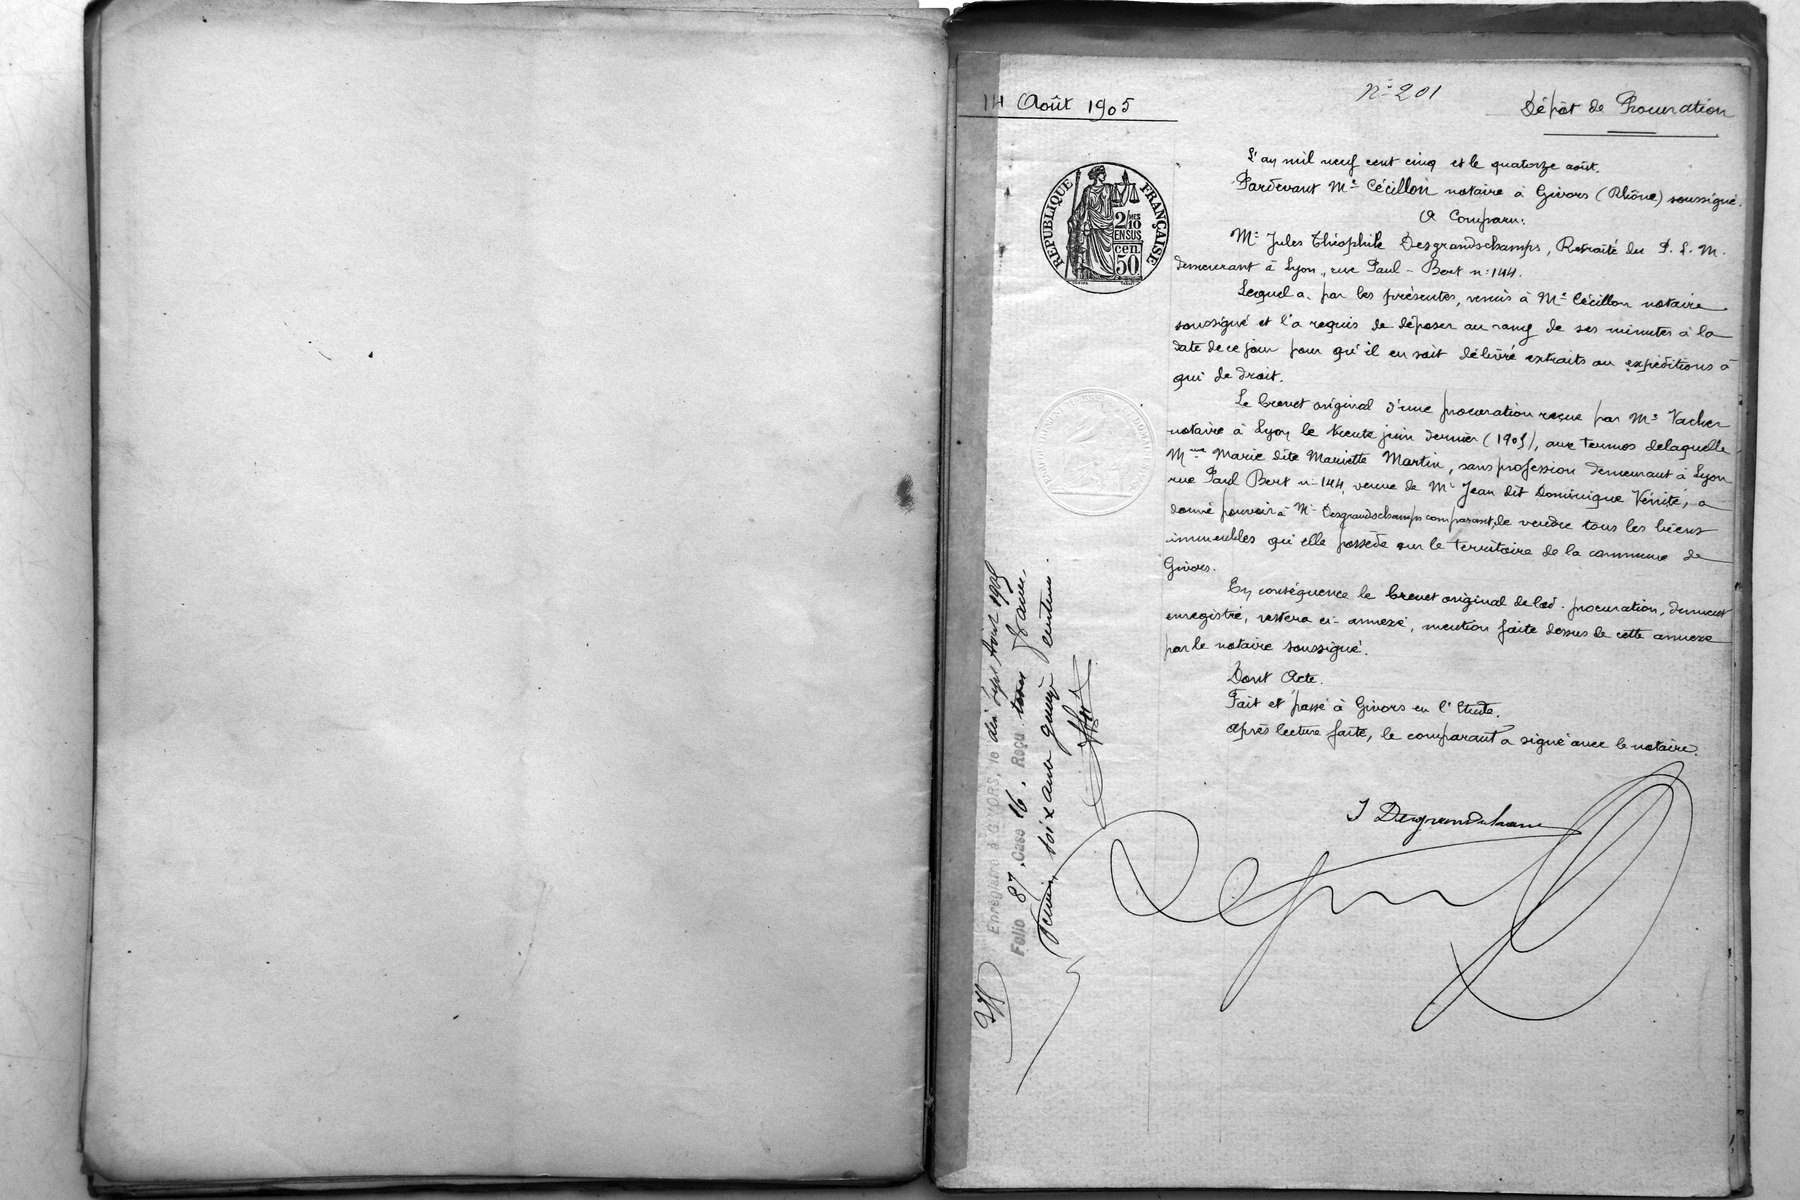 14 Août 1905
N° 201
Dépôt de Procuration
RÉPUBLIQUE FRANÇAISE
2/10 MES
EN SUS
cen.
50
L'an mil neuf cent cinq et le quatorze août.
Pardevant Me Cécillon notaire à Givors (Rhône) soussigné.
A Comparu:
Mr Jules Théophile Desgrandschamps, Retraité du P. L. M.
demeurant à Lyon, rue Paul-Bert n° 144.
Lequel a, par les présentes, remis à Me Cécillon notaire
soussigné et l'a requis de déposer au rang de ses minutes à la
date de ce jour pour qu'il en soit délivré extraits ou expéditions à
qui de droit.
Le brevet original d'une procuration reçue par Me Vacher
notaire à Lyon le trente juin dernier (1905), aux termes de laquelle
Mme Marie dite Mariette Martin, sans profession demeurant à Lyon
rue Paul Bert n° 144, veuve de Mr Jean dit Dominique Vérité, a
donné pouvoir à Mr Desgrandschamps comparant, de vendre tous les biens
immeubles qu'elle possède sur le territoire de la commune de
Givors.
En conséquence le brevet original de lad. procuration, dûment
enregistré, restera ci-annexé, mention faite dessus de cette annexe
par le notaire soussigné.
Dont Acte.
Fait et passé à Givors en l'Etude.
Après lecture faite, le comparant a signé avec le notaire.
J Desgrandschamps
Enregistré à GIVORS, le dix sept Août 1905
Folio 87, Case 16. Reçu trois francs
soixante quinze centimes.